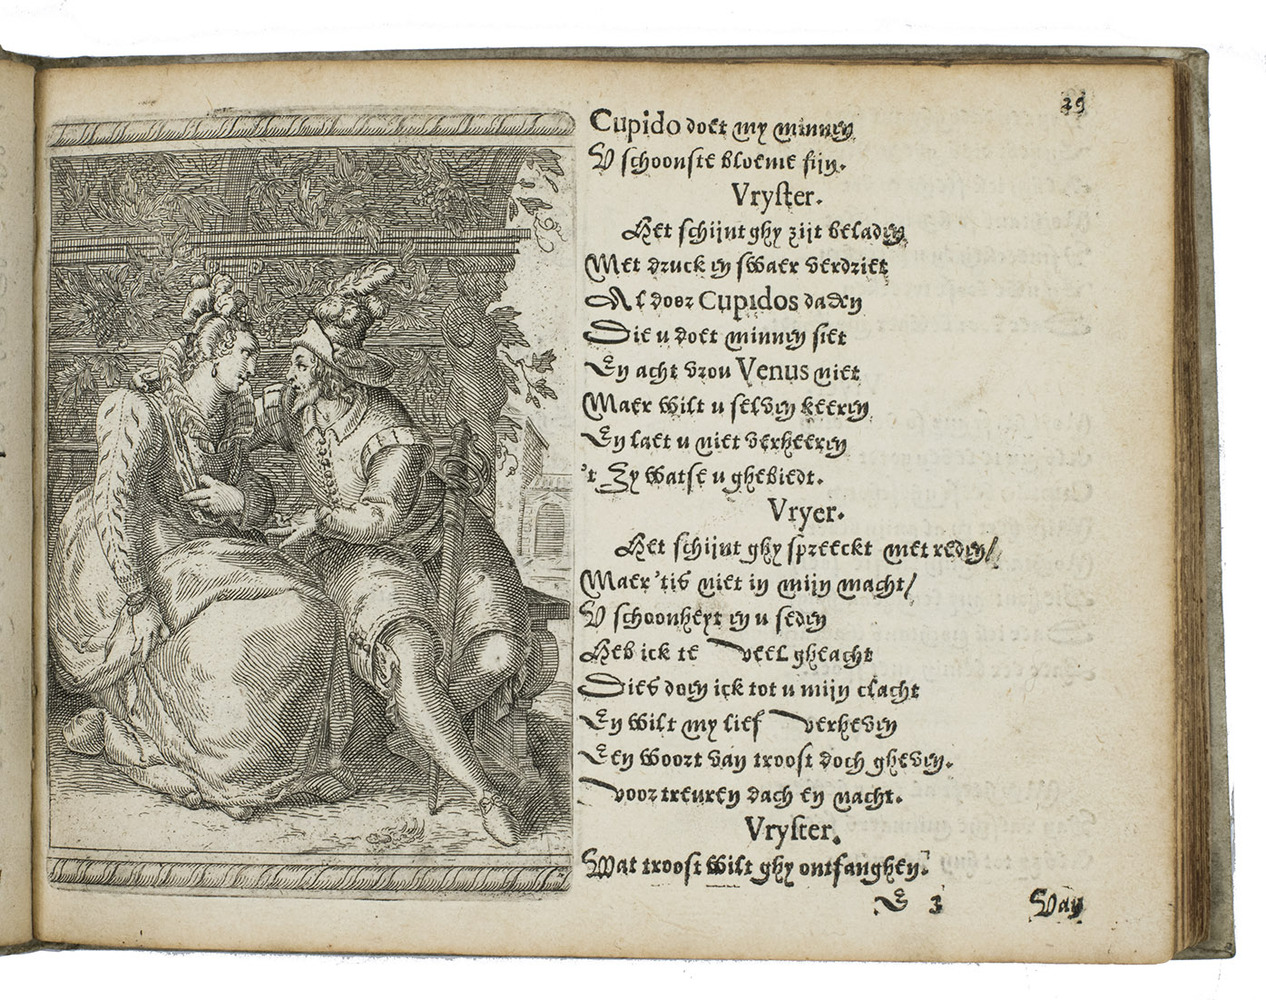 39
Cupido doet my minnen
V schoonste bloeme fijn.
Vryster.
Het schijnt ghy zijt beladen
Met druck en swaer verdriet
Al door Cupidos daden
Die u doet minnen siet
En acht vrou Venus niet
Maer wilt u selven keeren
En laet u niet verheeren
't Zy watse u ghebiedt.
Vryer.
Het schijnt ghy spreeckt met reden/
Maer 'tis niet in mijn macht/
V schoonheyt en u seden
Heb ick te veel gheacht
Dies doen ick tot u mijn clacht
En wilt my lief verheven
Een woort van troost doch gheven.
voor treuren dach en nacht.
Vryster.
Wat troost wilt ghy ontfanghen?
E 3
Van